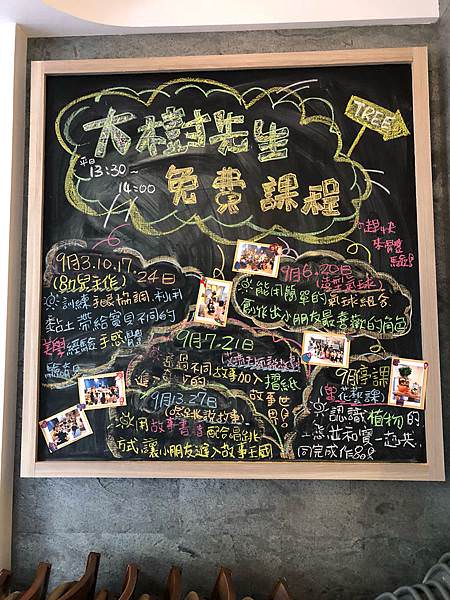 大樹先生
免費課程
平日
13:30~
14:00
TREE
趕快
來體
驗!
9月3.10.17.
24日
訓練手眼協調,利用
黏土帶給寶貝不同的
美學經驗手感體
驗。
9月6.20日
(造型氣球)
能用簡單的氣球組合
創作出小朋友最喜歡的角色
9月7.21日
透過不同故事加入摺紙
進入
故事世
界!
9月13.27日
(唱跳說故事)
用故事書書配合唱跳
方式,讓小朋友進入故事王國
9月停課
花藝課
認識植物的
生態並和寶一起共
同完成作品!